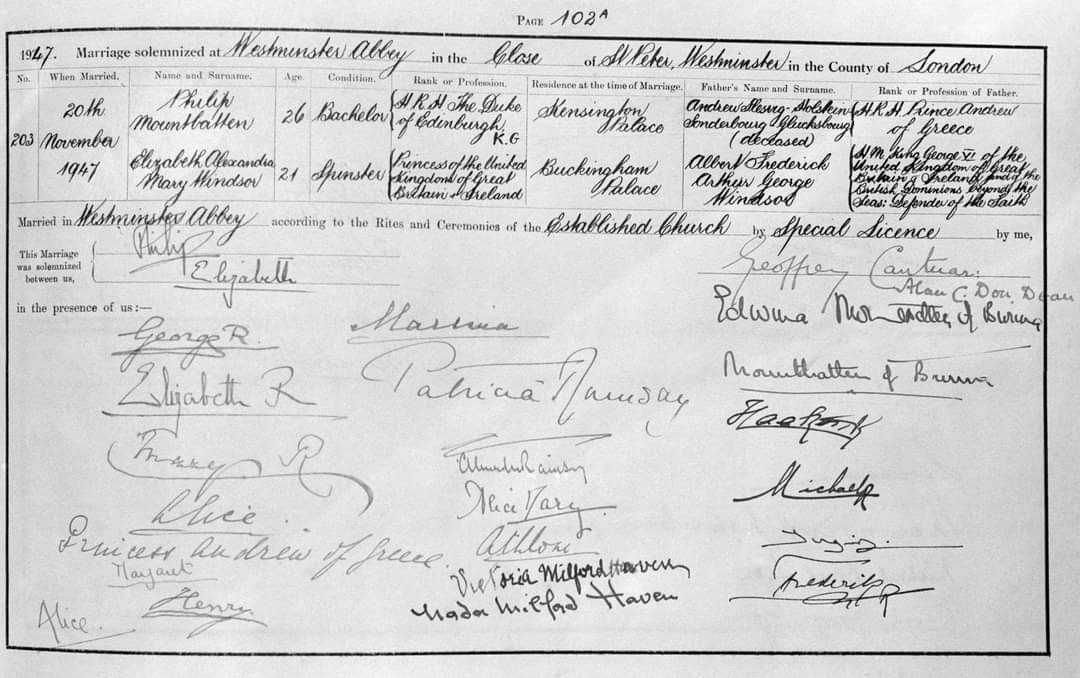 PAGE 102A
1947. Marriage solemnized at Westminster Abbey in the Close of St Peter, Westminster in the County of London
No. When Married. Name and Surname. Age. Condition. Rank or Profession. Residence at the time of Marriage. Father's Name and Surname. Rank or Profession of Father.
203
20th
November
1947
Philip
Mountbatten
26
Bachelor
H R H The Duke
of Edinburgh
K.G
Kensington
Palace
Andrew
Sonderbourg Glucksbourg
(deceased)
H R H Prince Andrew
of Greece
Elizabeth Alexandra
Mary Windsor
21
Spinster
Princess of the United
Kingdom of Great
Britain + Ireland
Buckingham
Palace
Albert Frederick
Arthur George
Windsor
H M King George VI of the
United Kingdom of Great
Britain & Ireland and of the
British Dominions beyond the
Seas: Defender of the Faith
Married in Westminster Abbey according to the Rites and Ceremonies of the Established Church by Special Licence by me,
This Marriage
was solemnized
between us,
Philip
Elizabeth
Geoffrey Cantuar:
Alan C. Don. Dean
in the presence of us:—
George R.
Elizabeth R
Mary R
Alice
Princess Andrew of Greece
Margaret
Henry
Alice.
Marina
Patricia Ramsay
Alice Mary
Athlone
Victoria Milford Haven
Nada Milford Haven
Edwina Mountbatten of Burma
Mountbatten of Burma
Haakon R
Michael R
Frederik
R